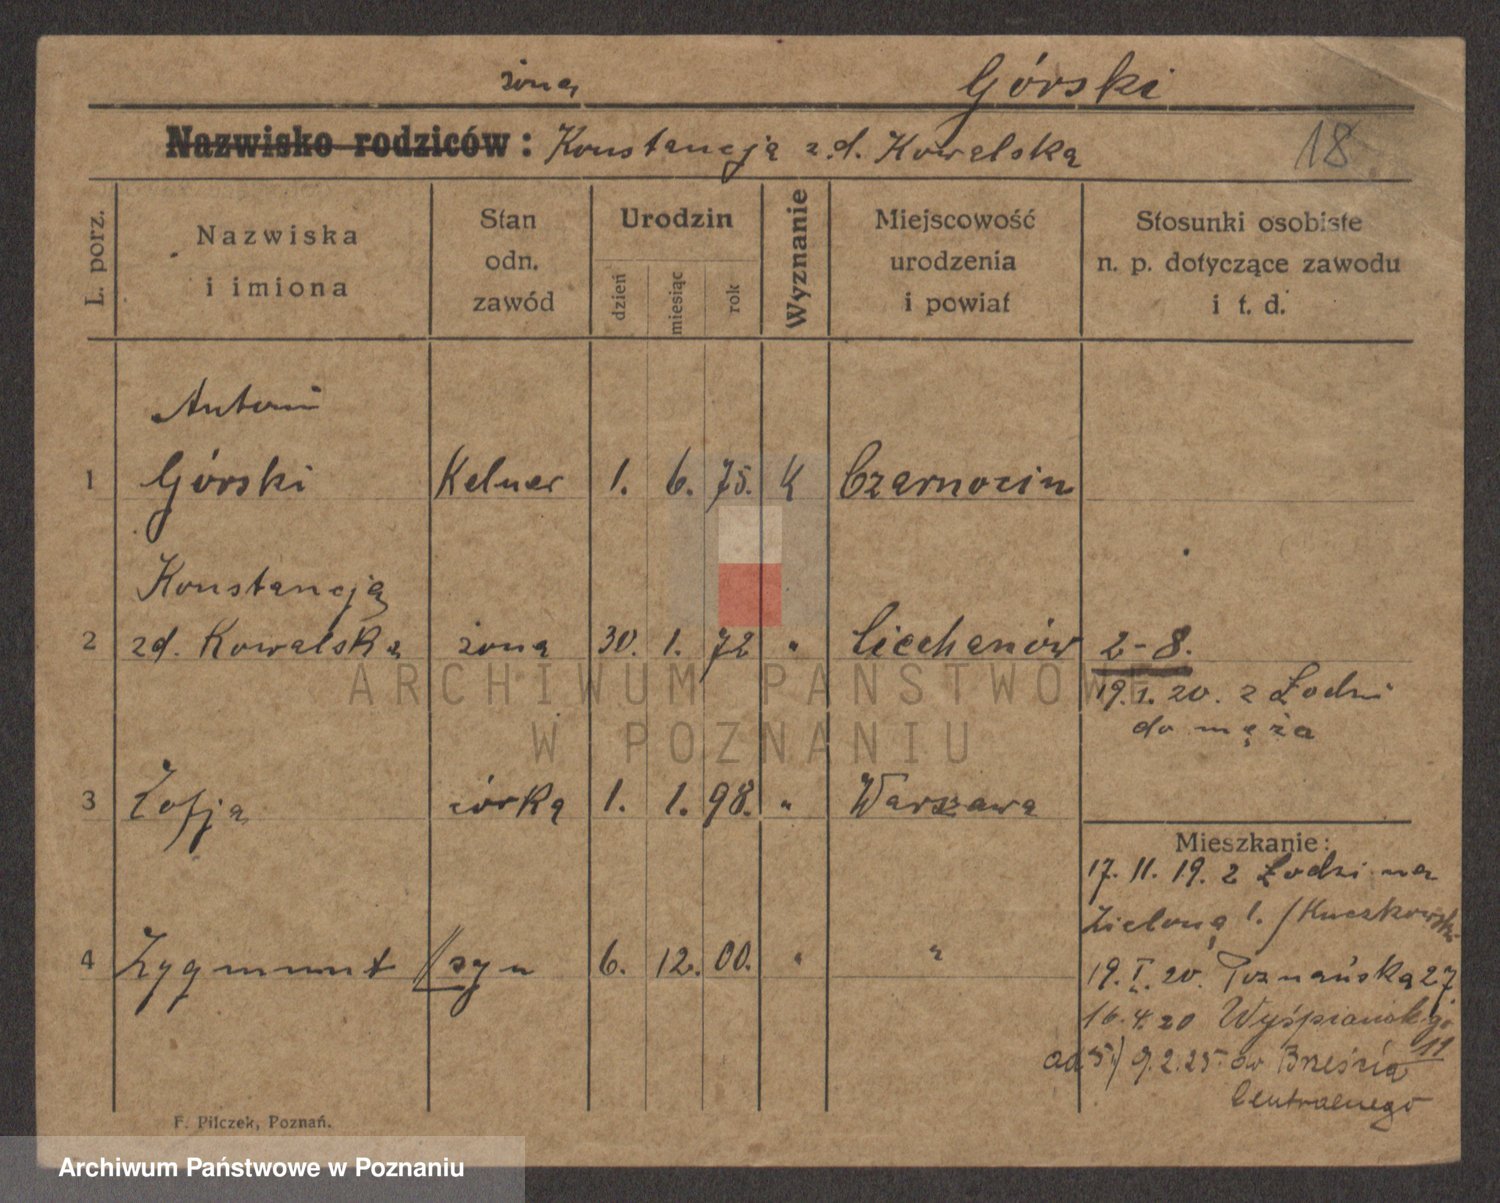 żona Górski
Nazwisko rodziców: Konstancja zd. Kowalska 18
L. porz.
Nazwiska
i imiona
Stan
odn.
zawód
Urodzin
dzień
miesiąc
rok
Wyznanie
Miejscowość
urodzenia
i powiat
Stosunki osobiste
n. p. dotyczące zawodu
i t. d.
Antoni
1 Górski Kelner 1. 6. 75. K Czarnocin
Konstancja
2 zd. Kowalska żona 30. 1. 72 " Ciechanów 2-8.
19. I. 20. z Łodzi
do męża
3 Zofja córka 1. 1. 98. " Warszawa
Mieszkanie:
17. 11. 19. z Łodzi na
Zieloną 1. / Kuczkowski
4 Zygmunt syn 6. 12. 00. " "
19. I. 20. Poznańska 27
16. 4. 20 Wyśpiańskgo
11
ad 5) 9. 2. 25. do Brześcia
Centralnego
F. Pilczek, Poznań.
ARCHIWUM PAŃSTWOWE
W POZNANIU
Archiwum Państwowe w Poznaniu